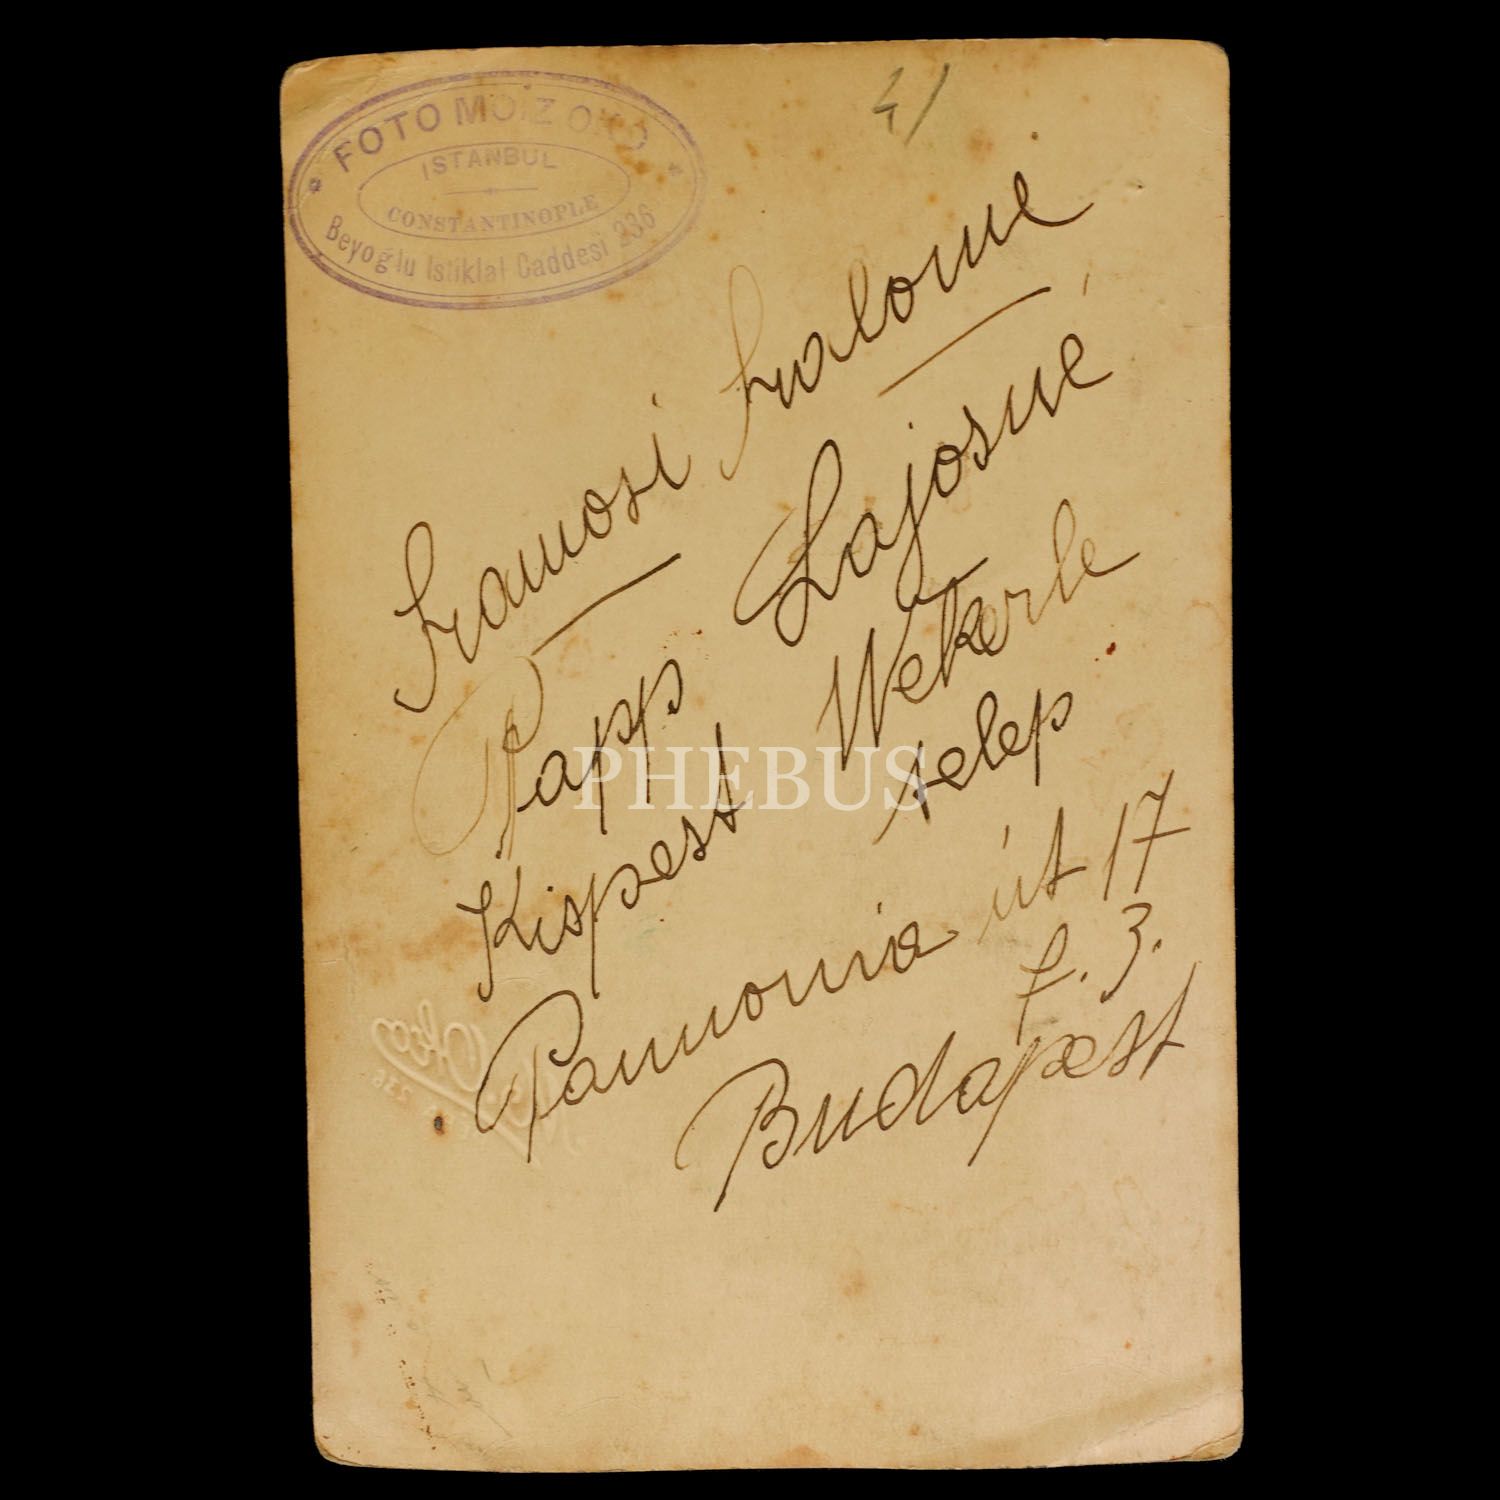 FOTO MOİZ OKO
ISTANBUL
CONSTANTINOPLE
Beyoğlu Istiklal Caddesi 236
4/
Szamosi
Papp Lajosné
Kispest Wekerle
telep
Pannonia út 17
f. 3.
Budapest
PHEBUS
Oko